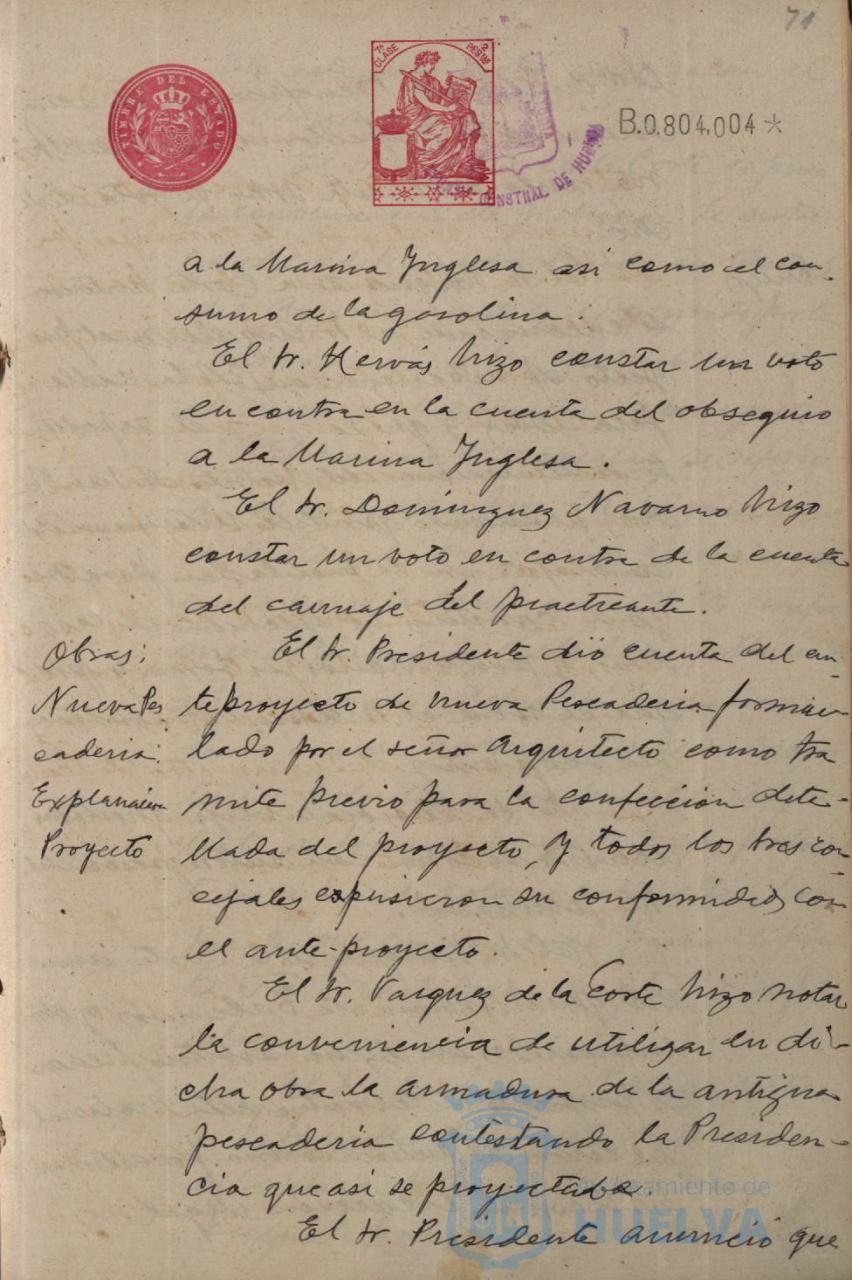 71
TIMBRE DEL ESTADO
7ª CLASE
2 PESETAS
B.0.804,004*
DE HUELVA
a la Marina Ynglesa asi como el con-
sumo de la gasolina.
El Sr. Hervás hizo constar un voto
en contra en la cuenta del obsequio
a la Marina Ynglesa.
El Sr. Dominguez Navarro hizo
constar un voto en contra de la cuenta
del carruaje del practicante.
Obras:
Nueva Pes
caderia.
Proyecto
El Sr. Presidente dió cuenta del an-
teproyecto de nueva Pescaderia formu-
lado por el señor Arquitecto como tra
mite previo para la confección deta-
llada del proyecto, y todos los Sres con-
cejales expusieron su conformidad con
el ante-proyecto.
El Sr. Vazquez de la Corte hizo notar
la conveniencia de utilizar en di-
cha obra la armadura de la antigua
pescaderia contestando la Presiden-
cia que asi se proyectaba.
El Sr. Presidente anunció que
Ayuntamiento de
HUELVA